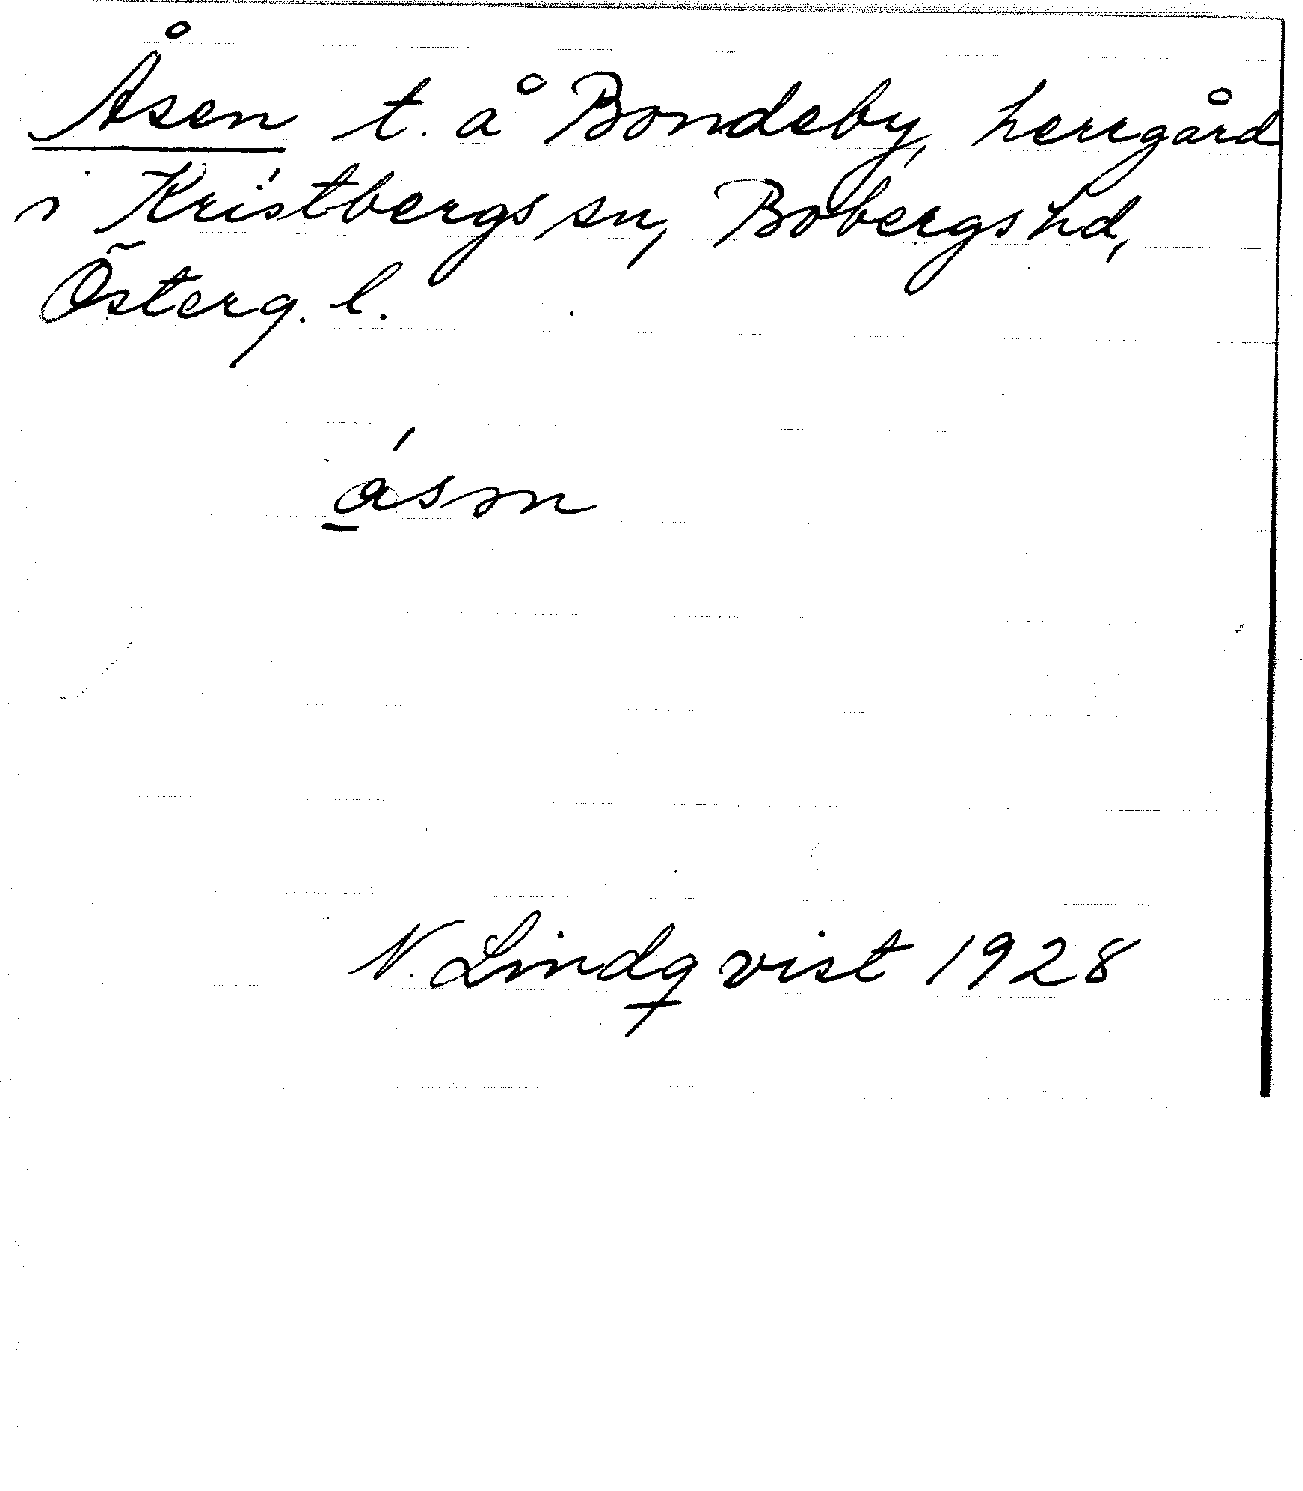 Åsen t. å Bondeby, herrgård
i Kristbergs sn, Bobergs hd,
Österg. l.
ásən
N. Lindqvist 1928